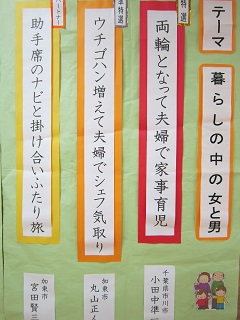 テーマ
暮らしの中の女と男
特選
両輪となって夫婦で家事育児
千葉県市川市
小田中準一
特選
ウチゴハン増えて夫婦でシェフ気取り
加東市
丸山正
助手席のナビと掛け合いふたり旅
加東市
宮田賢三